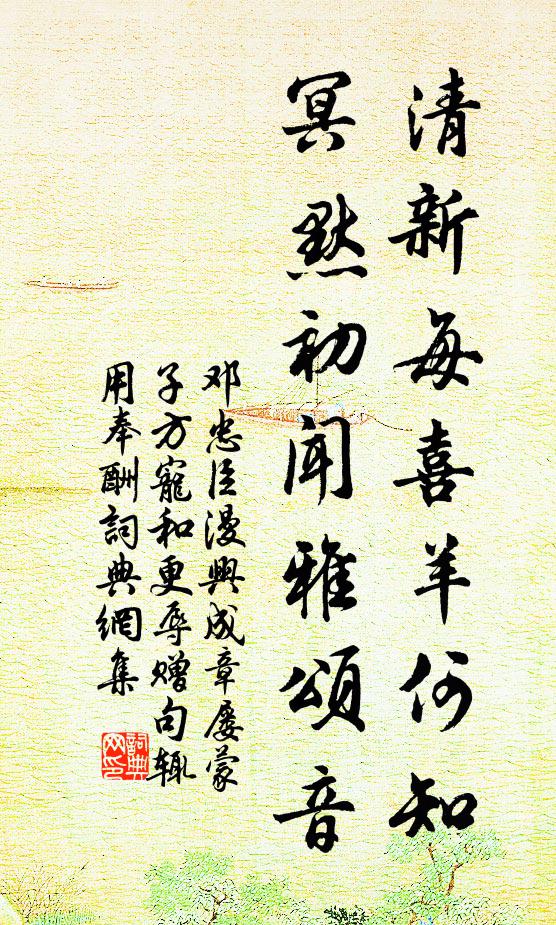 清新每喜羊何知
冥黙初聞雅頌音
邓忠臣漫興成章屡蒙
子方寵和更辱赠句辄
用奉酬詞典網集
詞典网印